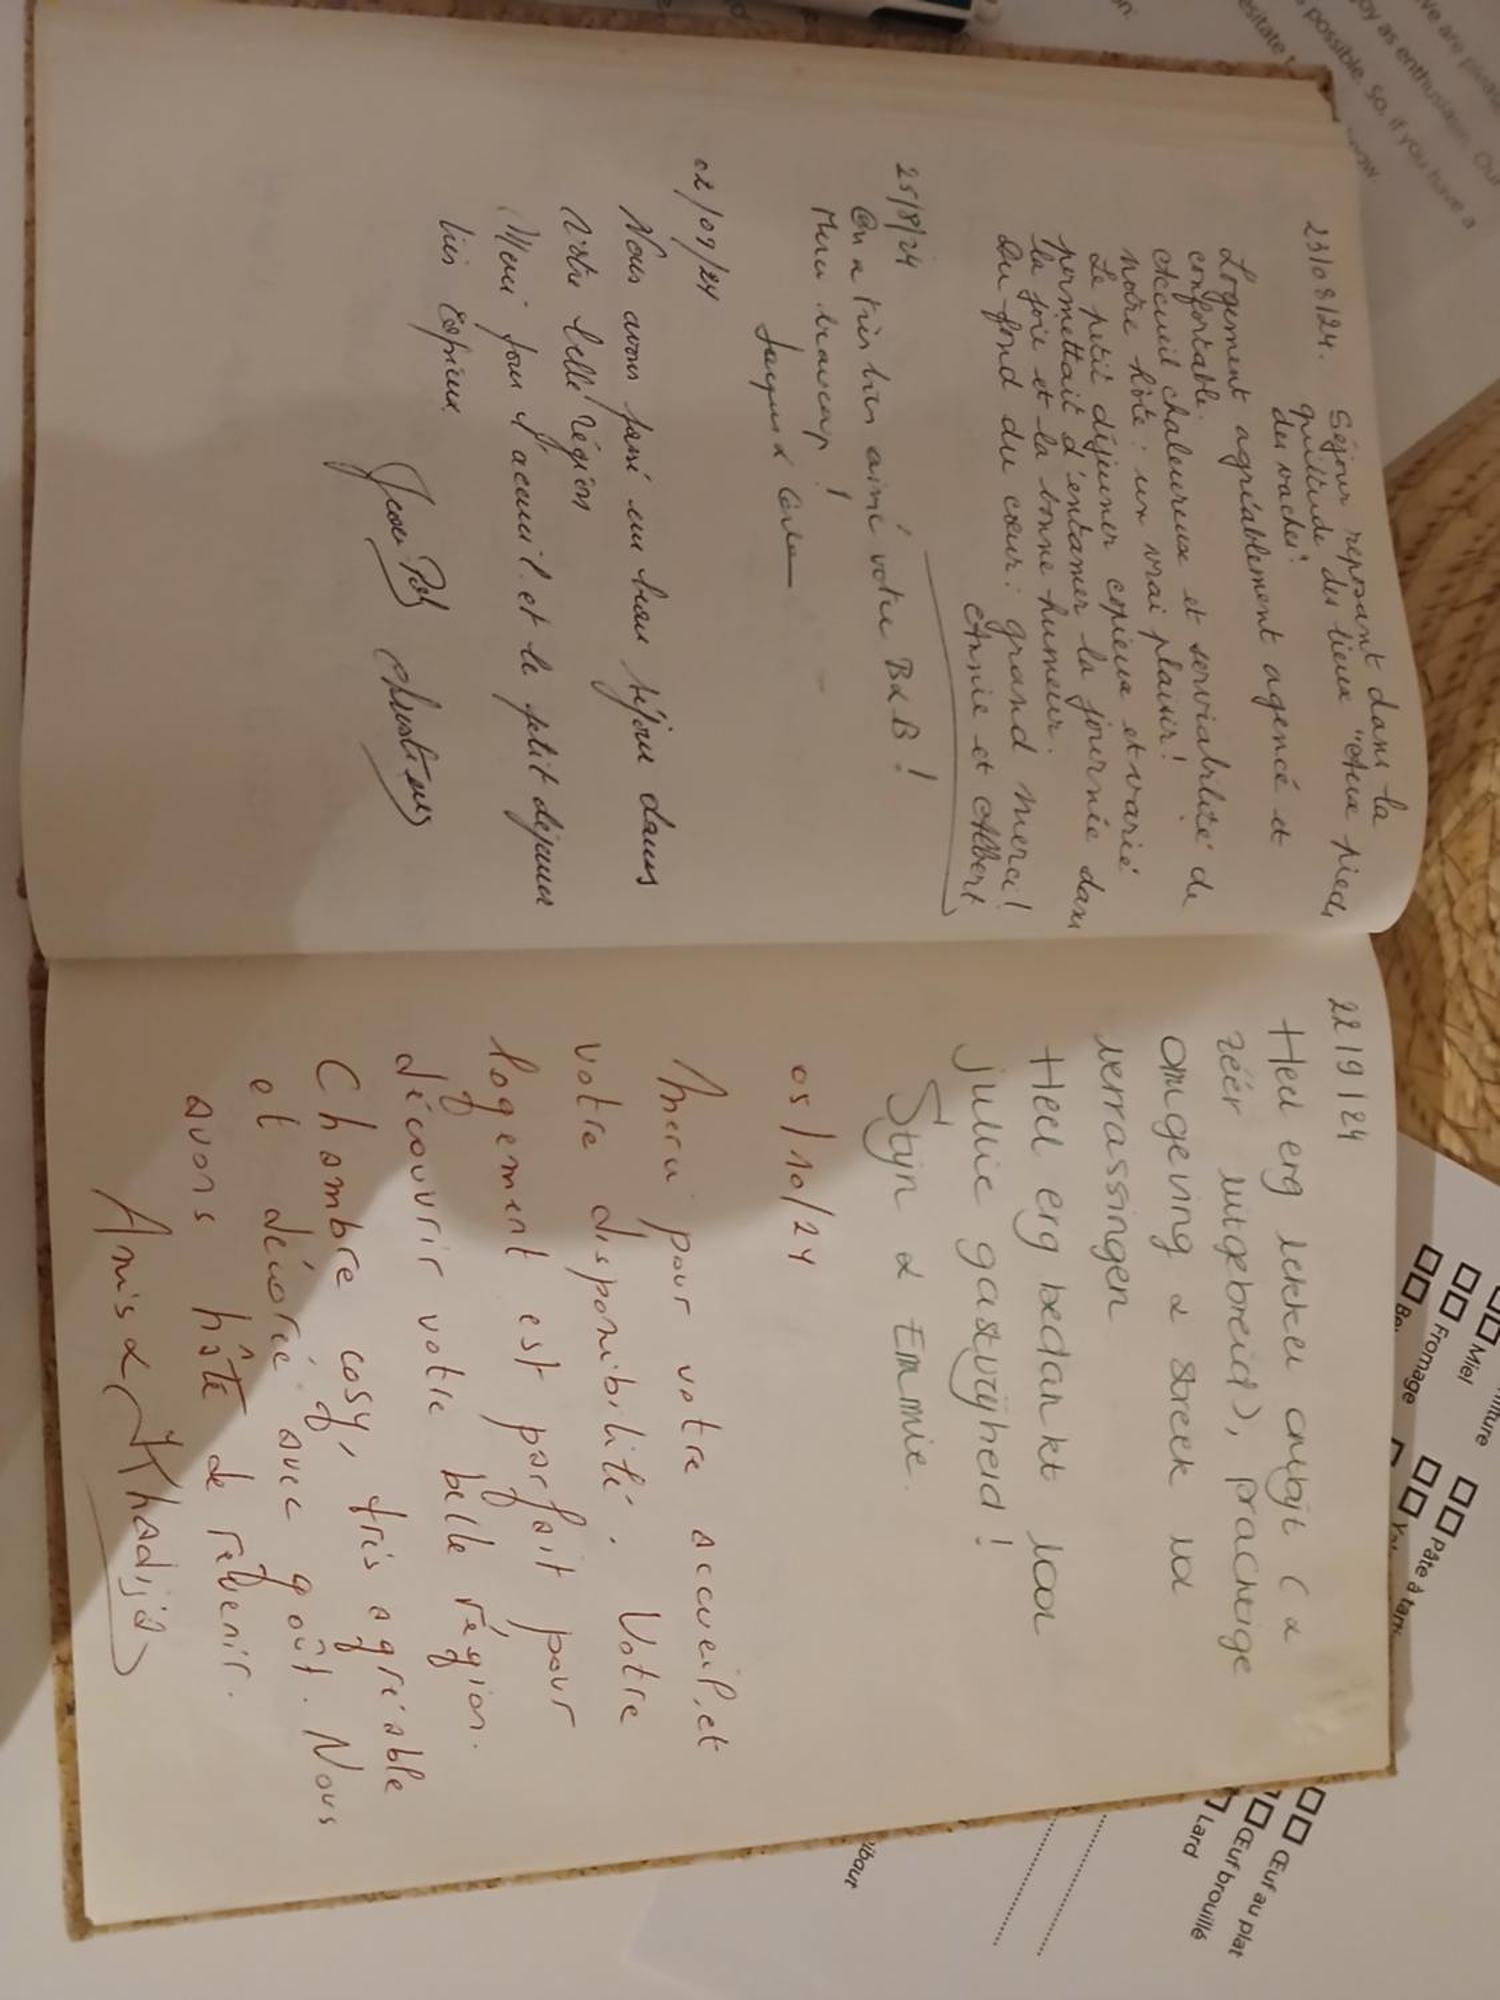 23/08/24. Séjour reposant dans la
quiétude des lieux "Aux pieds
des vaches".
Logement agréablement agencé et
confortable.
Accueil chaleureux et serviabilité de
notre hôte : un vrai plaisir!
Le petit déjeuner copieux et varié
permettait d'entamer la journée dans
la joie et la bonne humeur.
Du fond du cœur : grand merci!
Annie et Albert
25/8/24
On a très bien aimé votre B&B !
Merci beaucoup !
02/09/24
Nous avons passé un beau séjour dans
votre belle région
Merci pour l'accueil et le petit déjeuner
très copieux.
Jean Pol
22/9/24
Heel erg lekker ontbijt (&
zéér uitgebreid), prachtige
omgeving & streek vol
verrassingen
Heel erg bedankt voor
jullie gastvrijheid!
Stijn & Emmie.
05/10/24
Merci pour votre accueil, et
votre disponibilité. Votre
logement est parfait pour
découvrir votre belle région.
Chambre cosy, très agréable
et décorée avec goût. Nous
avons hâte de revenir.
Anis & Khadija
Miel
Fromage
Pâte à tart
Œuf au plat
Œuf brouillé
Lard
possible. So, if you have a
joy as enthusias
Our